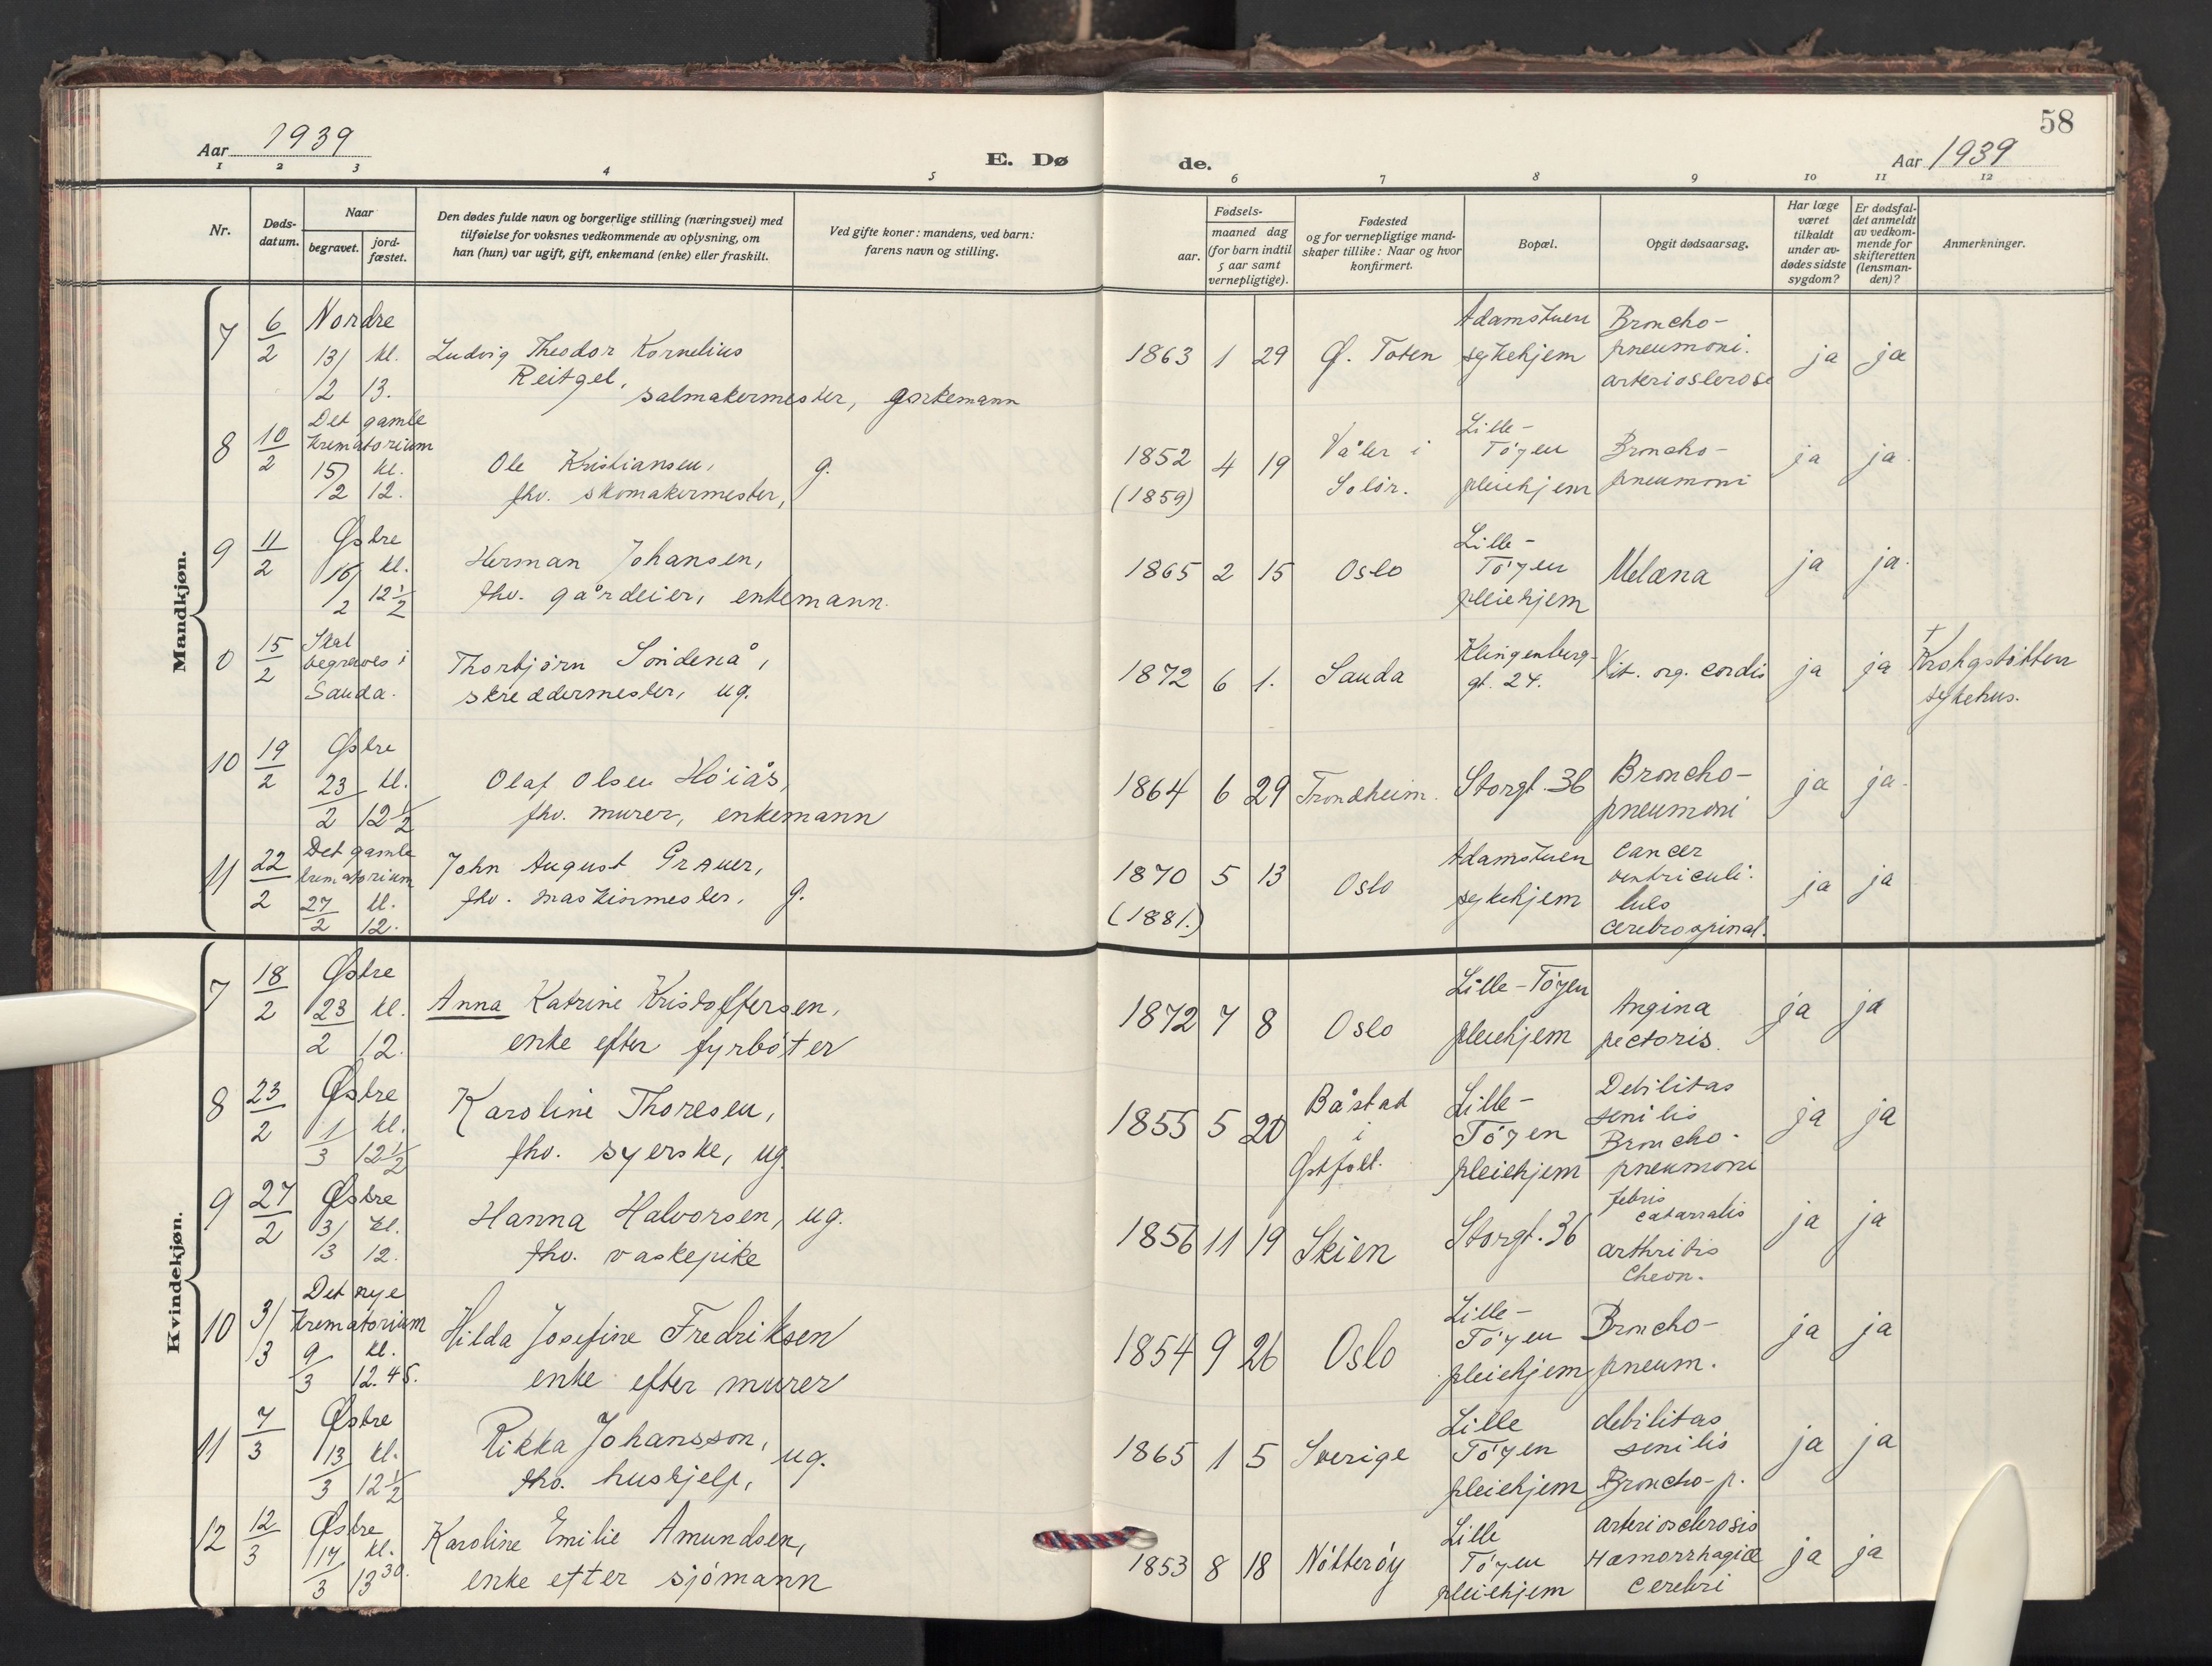 58
Aar 1939
E. Dø de.
Aar 1939
1 2 3 4 5 6 7 8 9 10 11 12
Nr.
Døds-
datum.
Naar
begravet.
jord-
fæstet.
Den dødes fulde navn og borgerlige stilling (næringsvei) med
tilføielse for voksnes vedkommende av oplysning, om
han (hun) var ugift, gift, enkemand (enke) eller fraskilt.
Ved gifte koner: mandens, ved barn:
farens navn og stilling.
Fødsels-
aar.
maaned dag
(for barn indtil
5 aar samt
vernepligtige).
Fødested
og for vernepligtige mand-
skaper tillike: Naar og hvor
konfirmert.
Bopæl.
Opgit dødsaarsag.
Har læge
været
tilkaldt
under av-
dødes sidste
sygdom?
Er dødsfal-
det anmeldt
av vedkom-
mende for
skifteretten
(lensman-
den)?
Anmerkninger.
Mandkjøn.
7
6/2
Nordre
13/2 kl. 13.
Ludvig Theodor Kornelius
Reitgel,
salmakermester, enkemann
1863 1 29
Ø. Toten
Adamstuen
sykehjem
Broncho-
pneumoni.
arterioslerose
ja ja
8
10/2
Det gamle
krematorium
15/2 kl. 12.
Ole Kristiansen,
fhv. skomakermester, g.
1852 4 19
(1859)
Våler i
Solør.
Lille-
Tøyen
pleiehjem
Broncho-
pneumoni
ja ja.
9
11/2
Østre
16/2 kl. 12½
Herman Johansen,
fhv. gårdeier, enkemann.
1865 2 15
Oslo
Lille-
Tøyen
pleiehjem
Melæna
ja ja.
0
15/2
Skal
begraves i
Sauda.
Thorbjørn Søndenå,
skreddermester, ug.
1872 6 1.
Sauda
Klingenberg-
gt. 24.
Vit. org. cordis
ja ja
†
Krohgstøtten
sykehus.
10
19/2
Østre
23/2 kl. 12½
Olaf Olsen Høiås,
fhv. murer, enkemann
1864 6 29
Trondheim.
Storgt. 36
Broncho-
pneumoni
ja ja.
11
22/2
Det gamle
krematorium
27/2 kl. 12.
John August Grauer,
fhv. maskinmester, g.
1870 5 13
(1881.)
Oslo
Adamstuen
sykehjem
Cancer
ventriculi.
lues
cerebrospinal.
ja ja
Kvindekjøn.
7
18/2
Østre
23/2 kl. 12.
Anna Katrine Kristoffersen,
enke efter fyrbøter
1872 7 8
Oslo
Lille-Tøyen
pleiehjem
Angina
pectoris.
ja ja
8
23/2
Østre
1/3 kl. 12½
Karoline Thoresen,
fhv. syerske, ug.
1855 5 20
Båstad
i
Østfold.
Lille-
Tøyen
pleiehjem
Debilitas
senilis
Broncho-
pneumoni
ja ja
9
27/2
Østre
3/3 kl. 12.
Hanna Halvorsen, ug.
fhv. vaskepike
1856 11 19
Skien
Storgt. 36
febris
catarralis
arthritis
Cheon.
ja ja
10
3/3
Det nye
krematorium
9/3 kl. 12.45.
Hilda Josefine Fredriksen
enke efter murer
1854 9 26
Oslo
Lille-
Tøyen
pleiehjem
Broncho-
pneum.
ja ja
11
7/3
Østre
13/3 kl. 12½
Rikka Johansson,
fhv. hushjelp, ug.
1865 1 5
Sverige
Lille
Tøyen
pleiehjem
debilitas
senilis
Broncho-p.
ja ja
12
12/3
Østre
17/3 kl. 13 30.
Karoline Emilie Amundsen,
enke efter sjømann
1853 8 18
Nøtterøy
Lille
Tøyen
pleiehjem
arteriosclerosis
Hæmorrhagiæ
Cerebri
ja ja